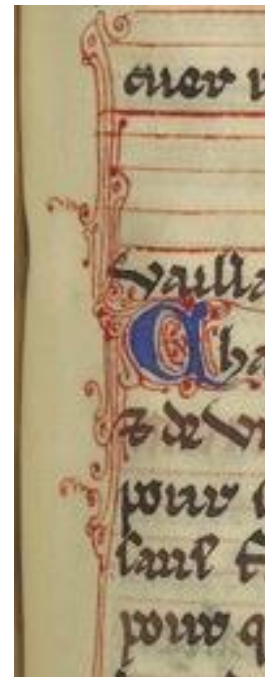 cuer v
vailla
Cha
⁊ de vi
pour
pour q